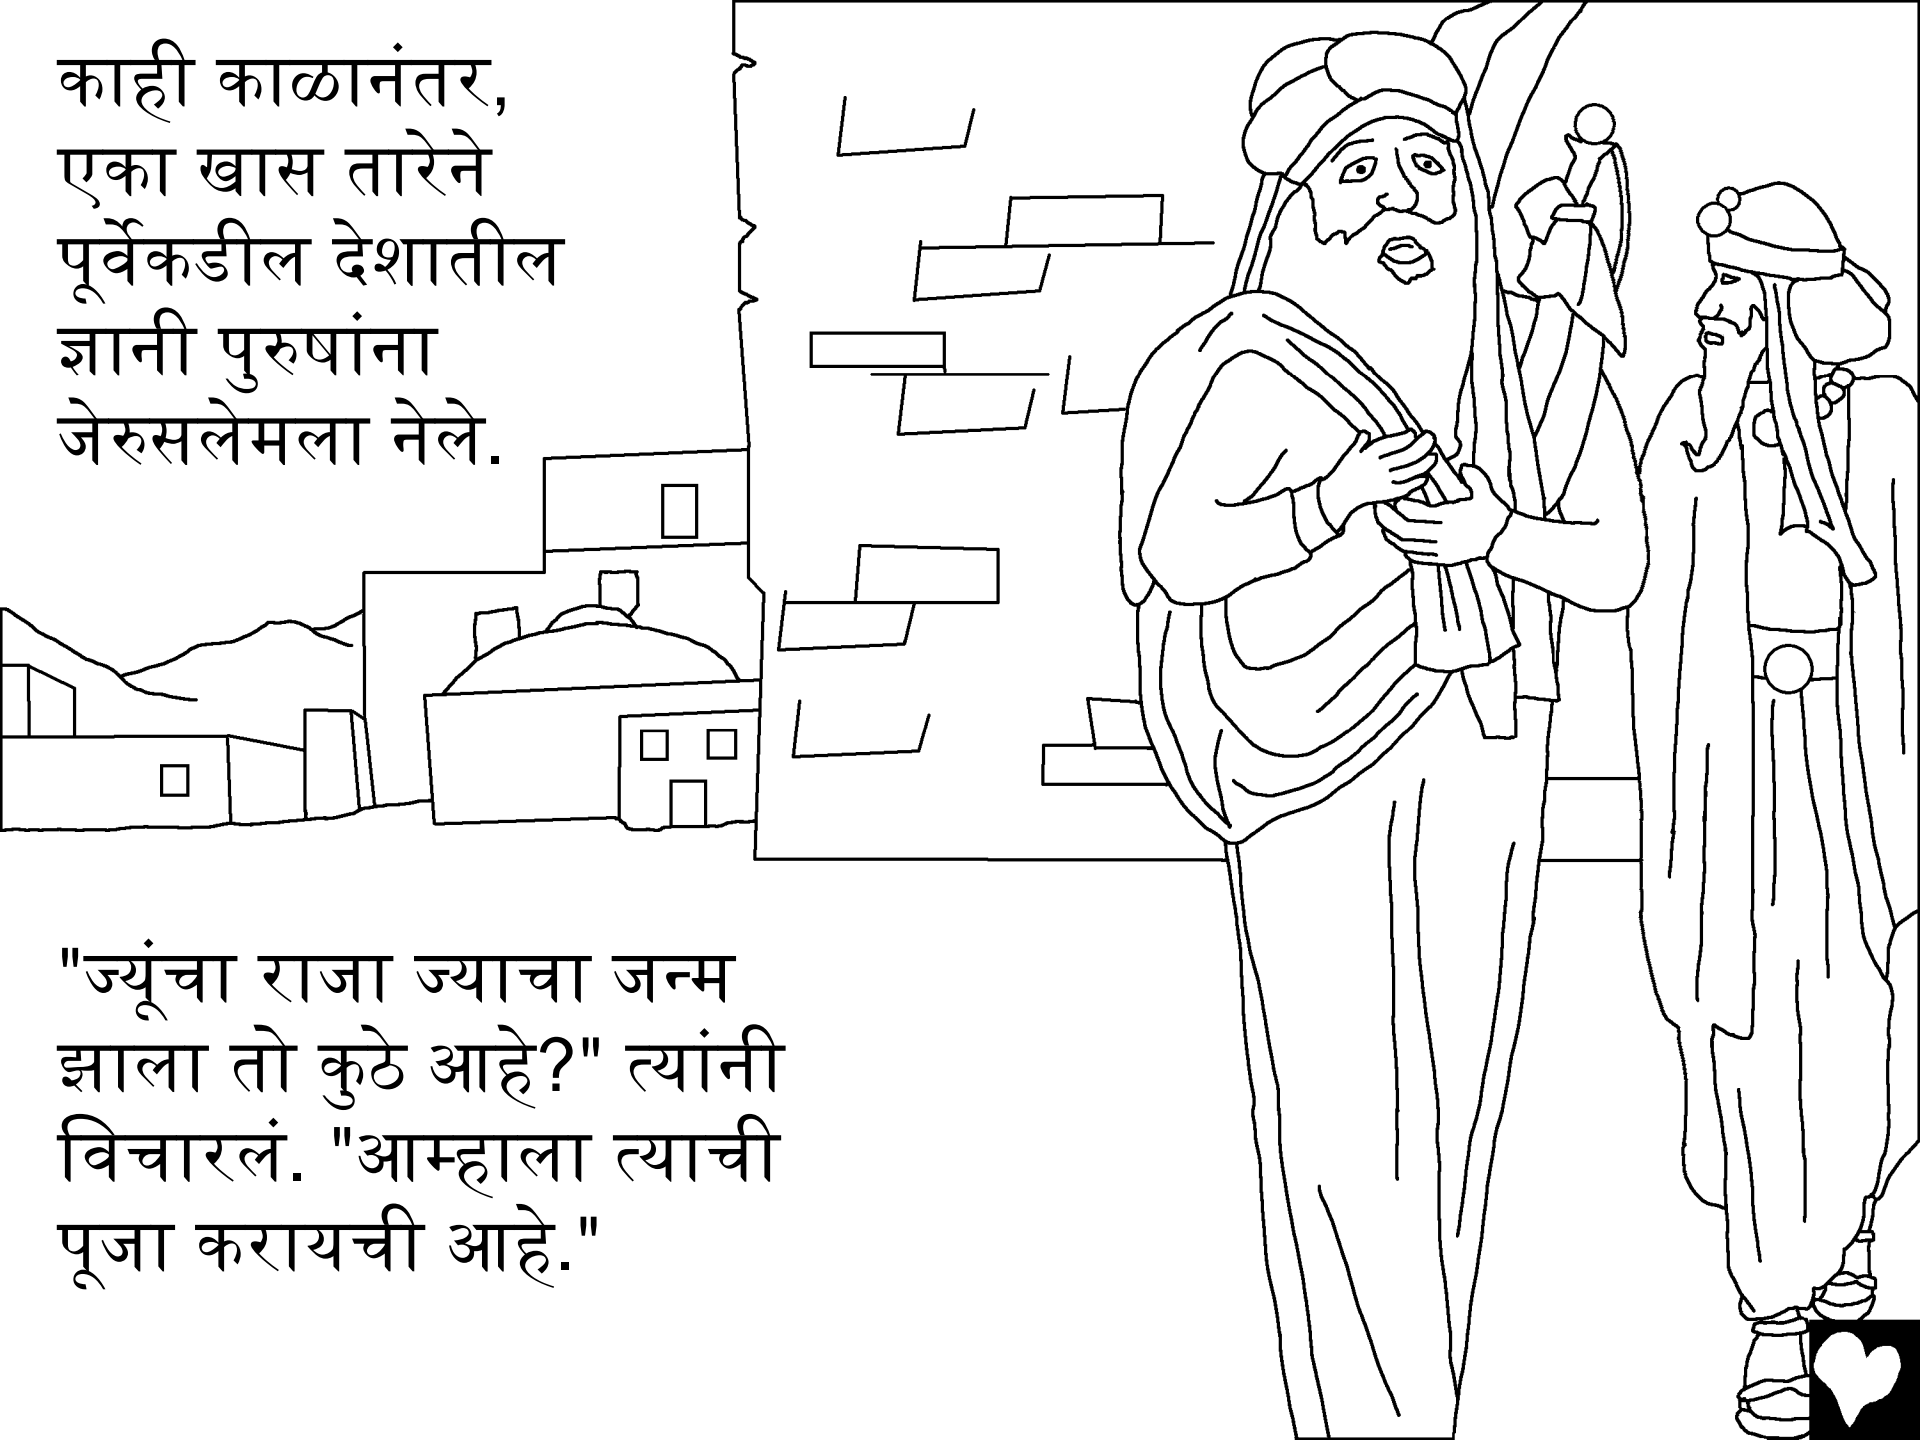 काही काळानंतर,
एका खास तारेने
पूर्वेकडील देशातील
ज्ञानी पुरुषांना
जेरुसलेमला नेले.
"ज्यूंचा राजा ज्याचा जन्म
झाला तो कुठे आहे?" त्यांनी
विचारलं. "आम्हाला त्याची
पूजा करायची आहे."